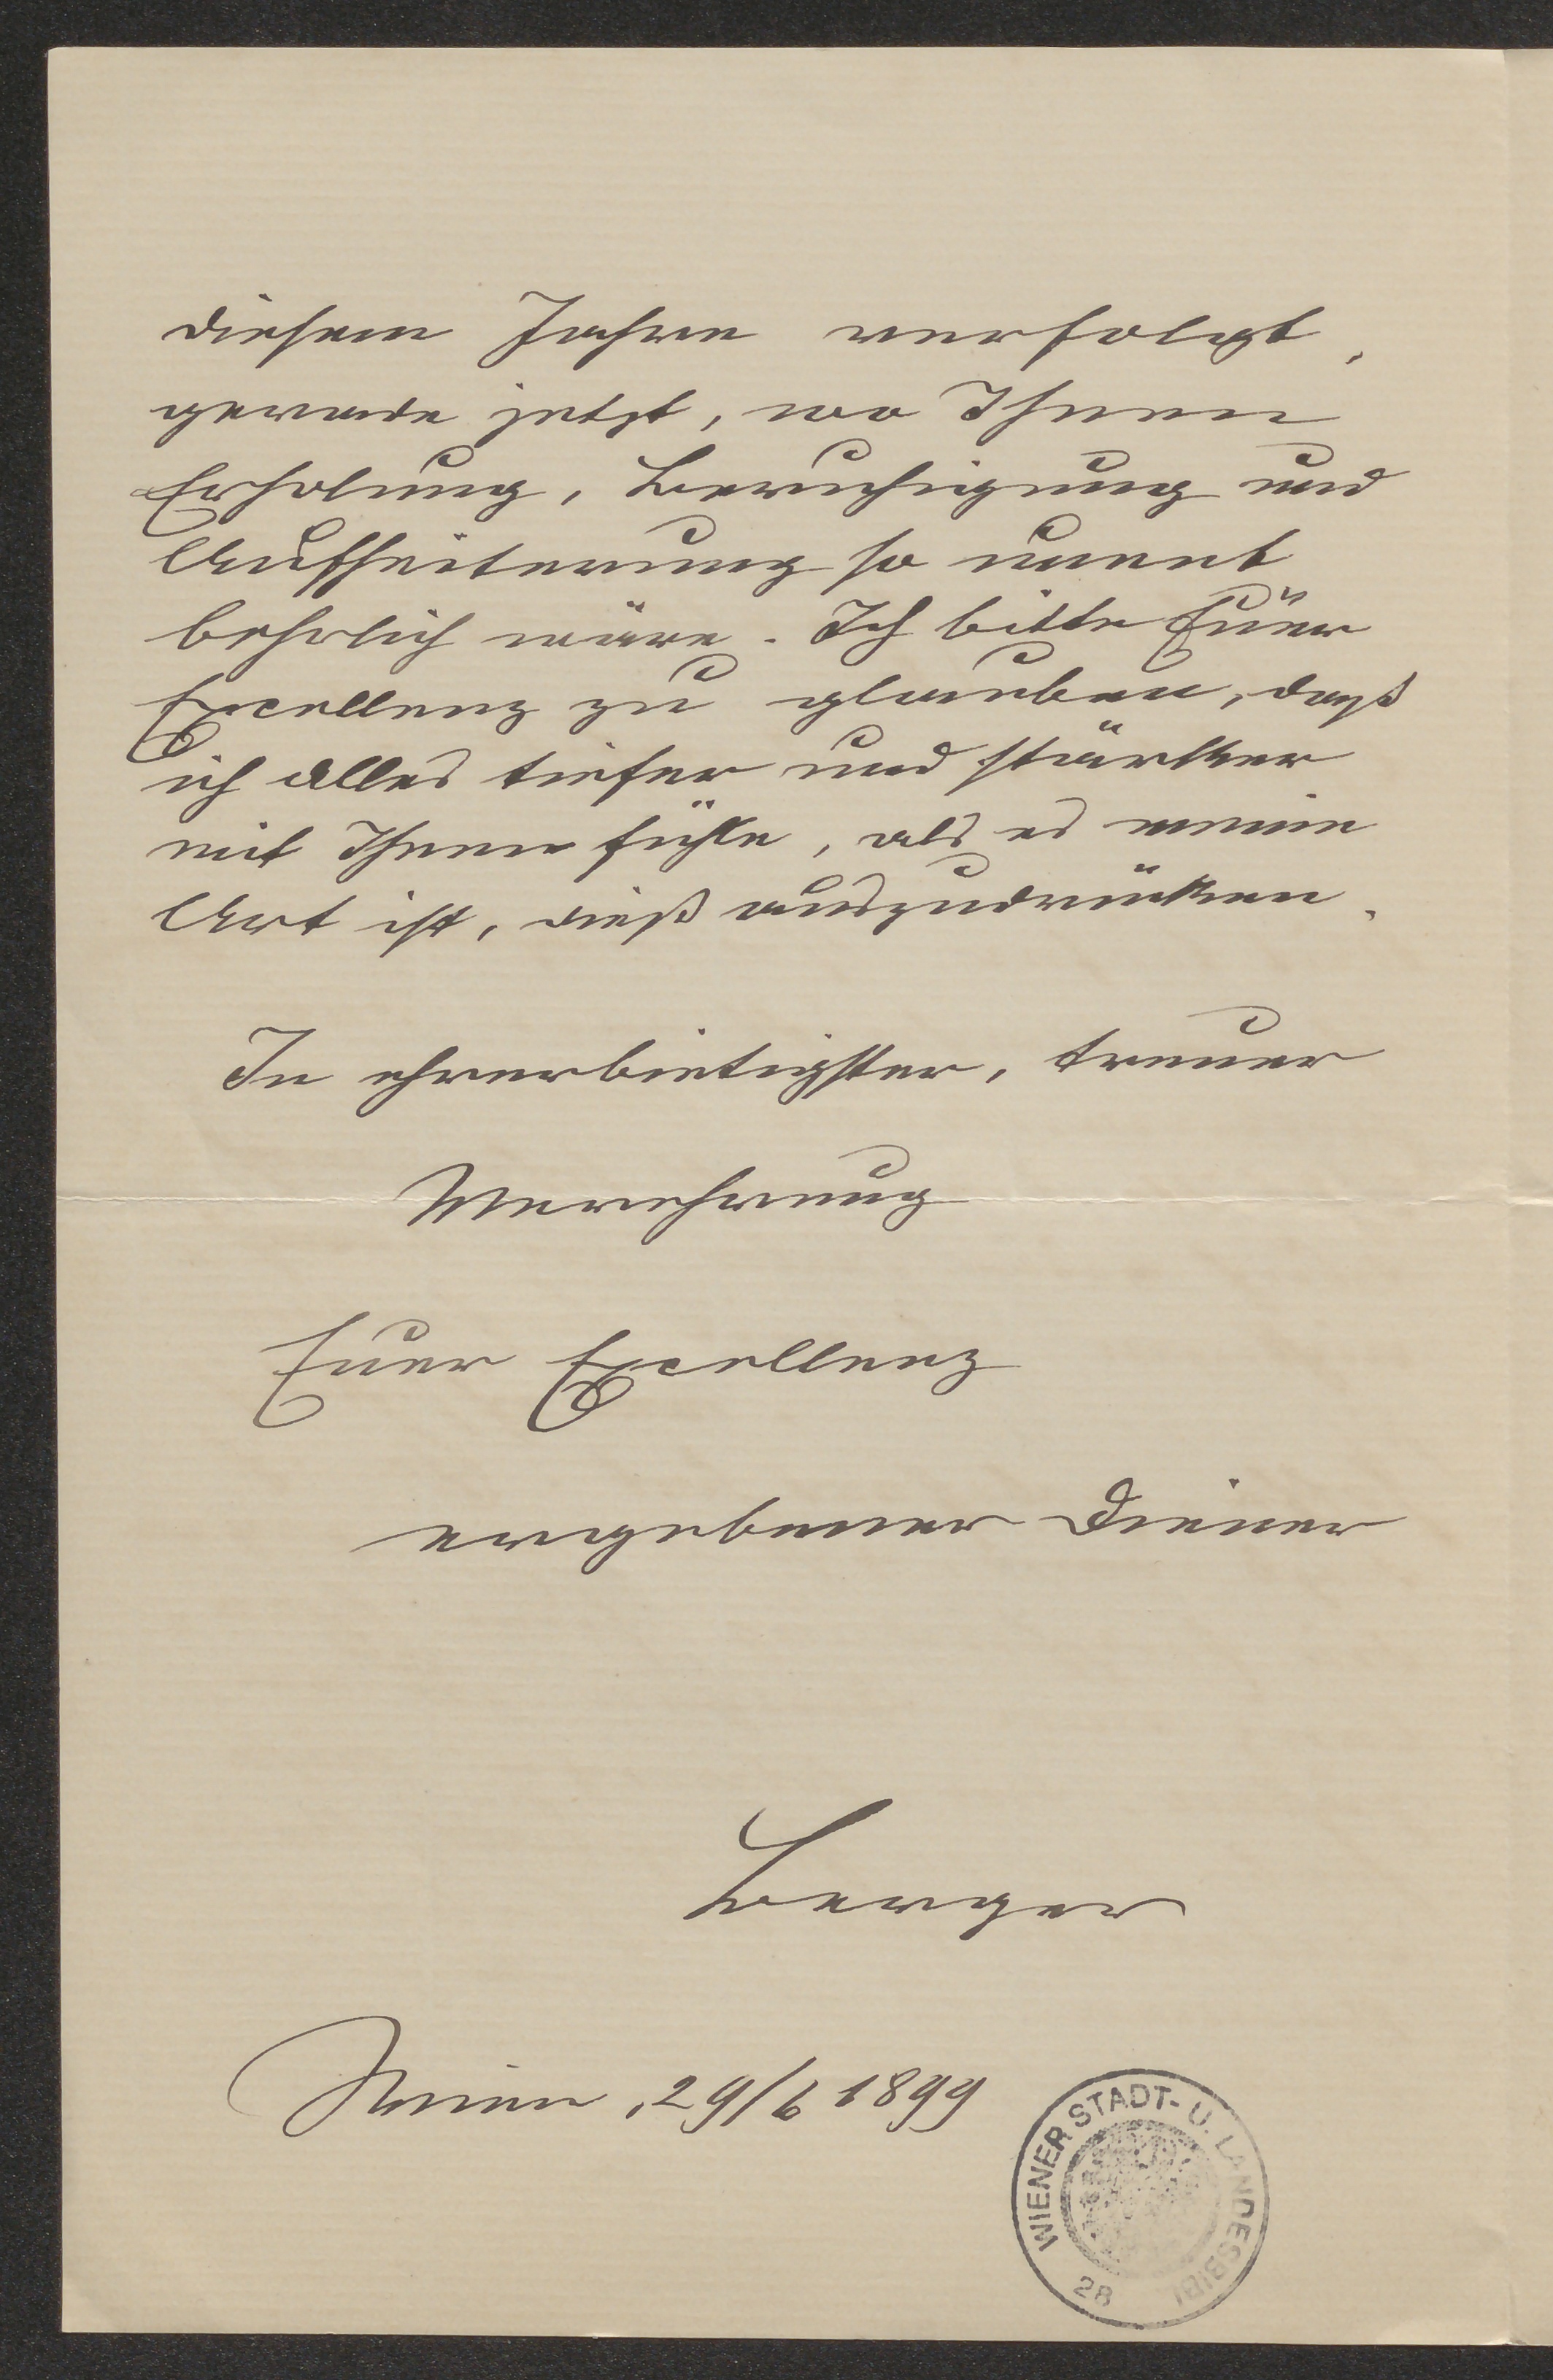 diesem Jahre verfolgt,
gerade jetzt, wo Ihnen
Erholung, Beruhigung und
Aufheiterung so unent
behrlich wäre. Ich bitte Euer
Excellenz zu glauben, daß
ich alles tiefer und stärker
mit Ihnen fühle, als es meine
Art ist, dieß auszudrücken.
In ehrerbietigster, treuer
Verehrung
Euer Excellenz
ergebener Diener
Berger
Wien, 29/6 1899
WIENER STADT- U. LANDESBIBL
28